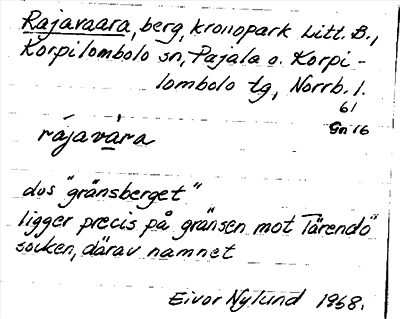 Rajavaara, berg, kronopark Litt. B.,
Korpilombolo sn, Pajala o. Korpi-
lombolo tg, Norrb. l.
61
Gn 16
rájavàra
dvs "gränsberget"
ligger precis på gränsen mot Tärendö
socken, därav namnet
Eivor Nylund 1968.